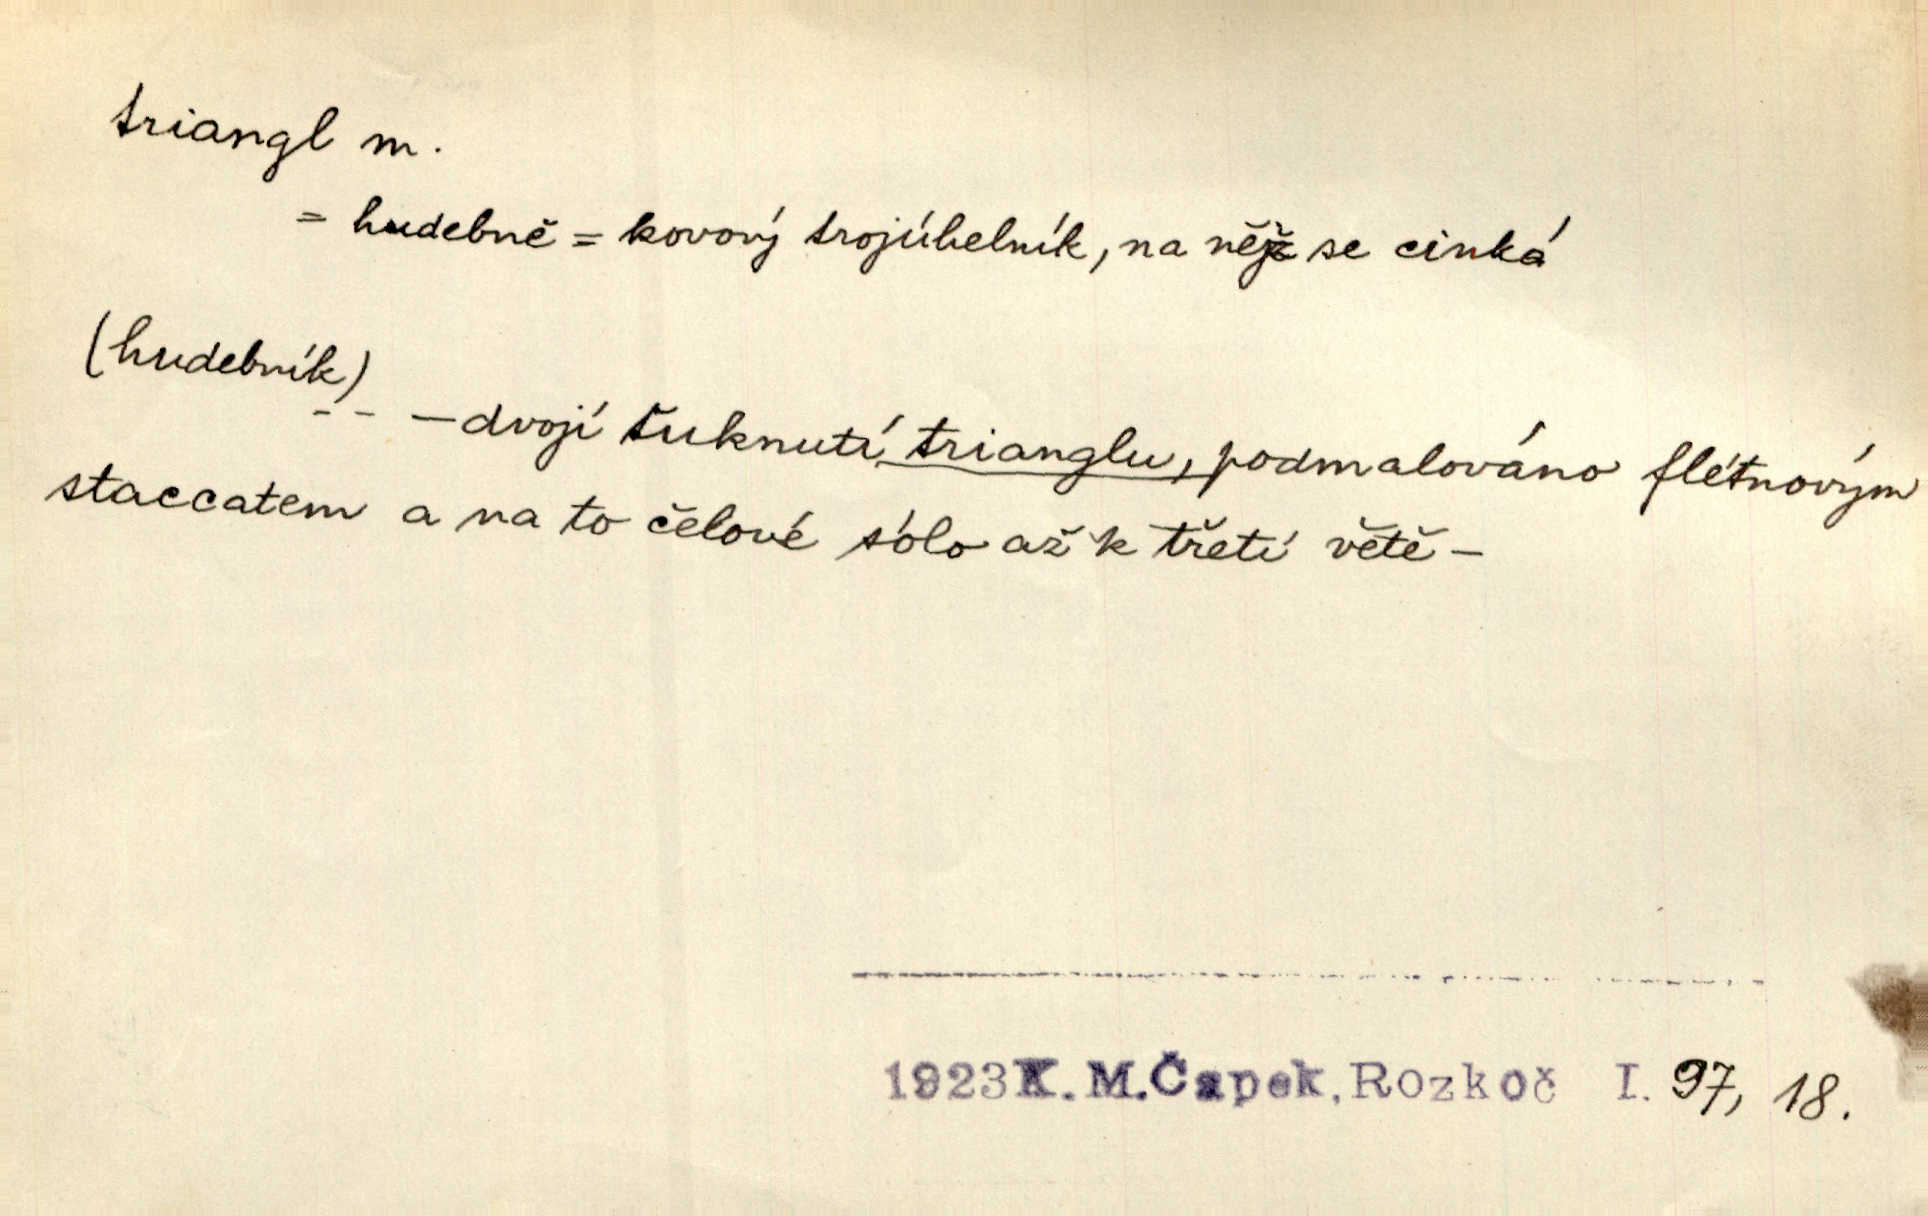 triangl m.
= hudebně = kovový trojúhelník, na nějž se cinká
(hudebník)
-- —dvojí ťuknutí trianglu, podmalováno flétnovým
staccatem a na to čelové sólo až k třetí větě —
1923 K. M. Čapek, Rozkoč I. 97, 18.